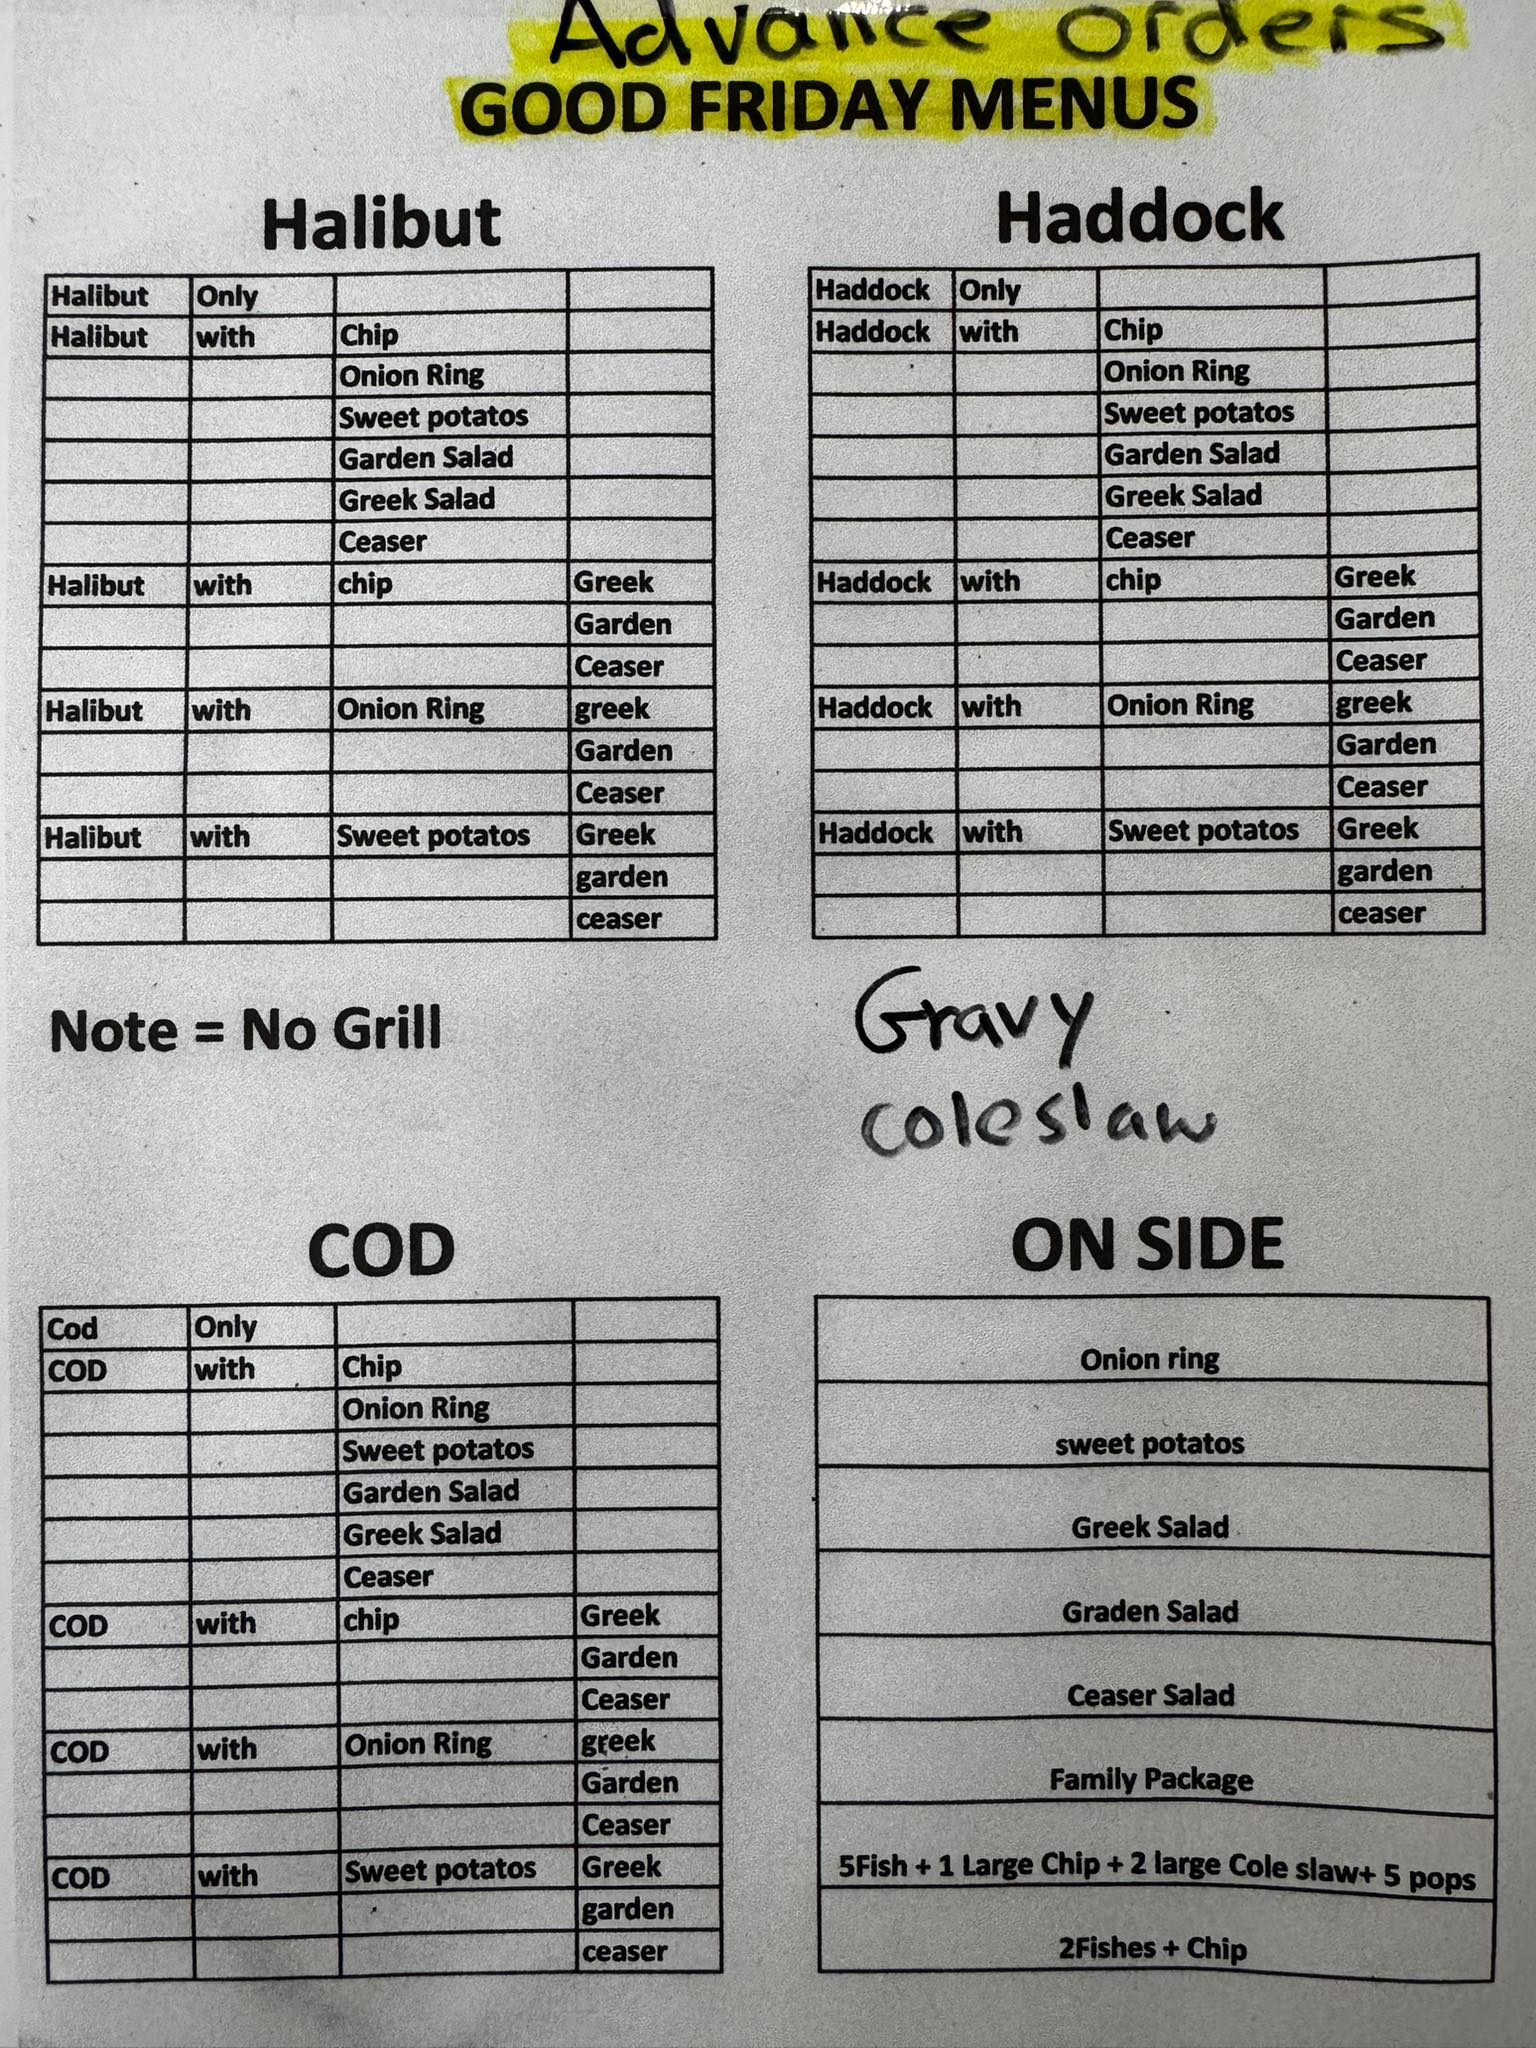 Advance orders
GOOD FRIDAY MENUS
Halibut
Halibut Only
Halibut with Chip
Onion Ring
Sweet potatos
Garden Salad
Greek Salad
Ceaser
Halibut with chip Greek
Garden
Ceaser
Halibut with Onion Ring greek
Garden
Ceaser
Halibut with Sweet potatos Greek
garden
ceaser
Haddock
Haddock Only
Haddock with Chip
Onion Ring
Sweet potatos
Garden Salad
Greek Salad
Ceaser
Haddock with chip Greek
Garden
Ceaser
Haddock with Onion Ring greek
Garden
Ceaser
Haddock with Sweet potatos Greek
garden
ceaser
Note = No Grill
Gravy
coleslaw
COD
Cod Only
COD with Chip
Onion Ring
Sweet potatos
Garden Salad
Greek Salad
Ceaser
COD with chip Greek
Garden
Ceaser
COD with Onion Ring greek
Garden
Ceaser
COD with Sweet potatos Greek
garden
ceaser
ON SIDE
Onion ring
sweet potatos
Greek Salad
Graden Salad
Ceaser Salad
Family Package
5Fish + 1 Large Chip + 2 large Cole slaw+ 5 pops
2Fishes + Chip